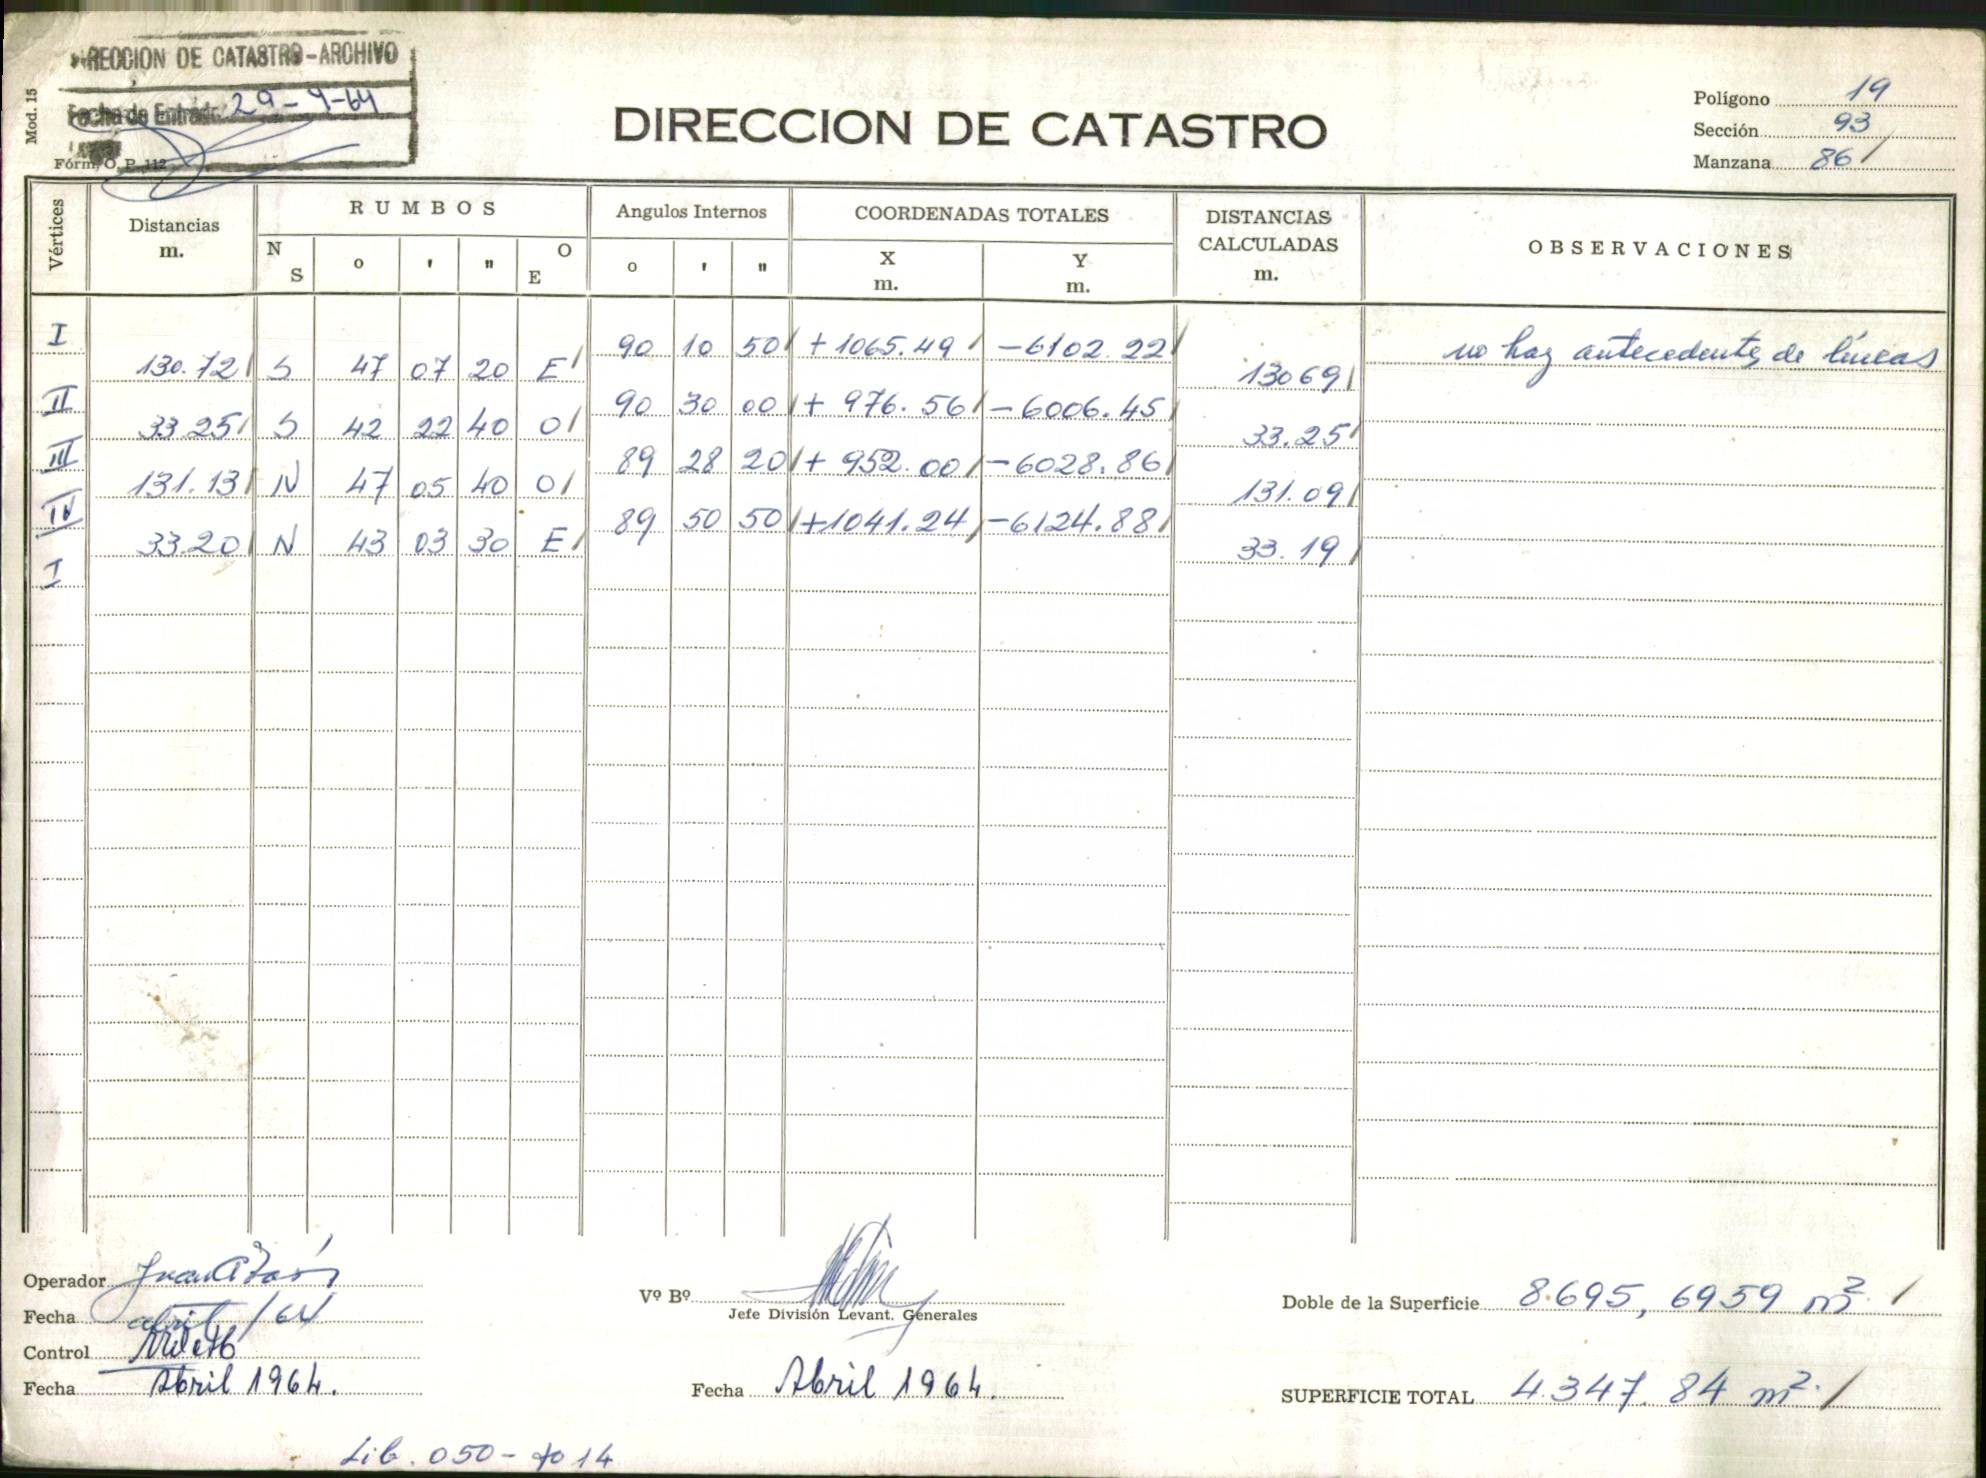 DIRECCION DE CATASTRO-ARCHIVO
Fecha de Entrada 29-4-64
Mod. 15
Fórm. O. P. 112
DIRECCION DE CATASTRO
Polígono 19
Sección 93
Manzana 86
Vértices
Distancias
m.
RUMBOS
N S o ' " O E
Angulos Internos
o ' "
COORDENADAS TOTALES
X m. Y m.
DISTANCIAS CALCULADAS m.
OBSERVACIONES
I 90 10 50 +1065.49 -6102.22 no hay antecedentes de líneas
130.72 S 47 07 20 E 130 69
II 90 30 00 + 976.56 -6006.45
33.25 S 42 22 40 O 33.25
III 89 28 20 + 952.00 -6028.86
131.13 N 47 05 40 O 131.09
IV 89 50 50 +1041.24 -6124.88
33.20 N 43 03 30 E 33.19
I
Operador
Fecha abril/64
Control
Fecha Abril 1964.
Vº Bº
Jefe División Levant. Generales
Fecha Abril 1964.
Doble de la Superficie 8.695,6959 m²
SUPERFICIE TOTAL 4.347.84 m²
Lib. 050- fo 14